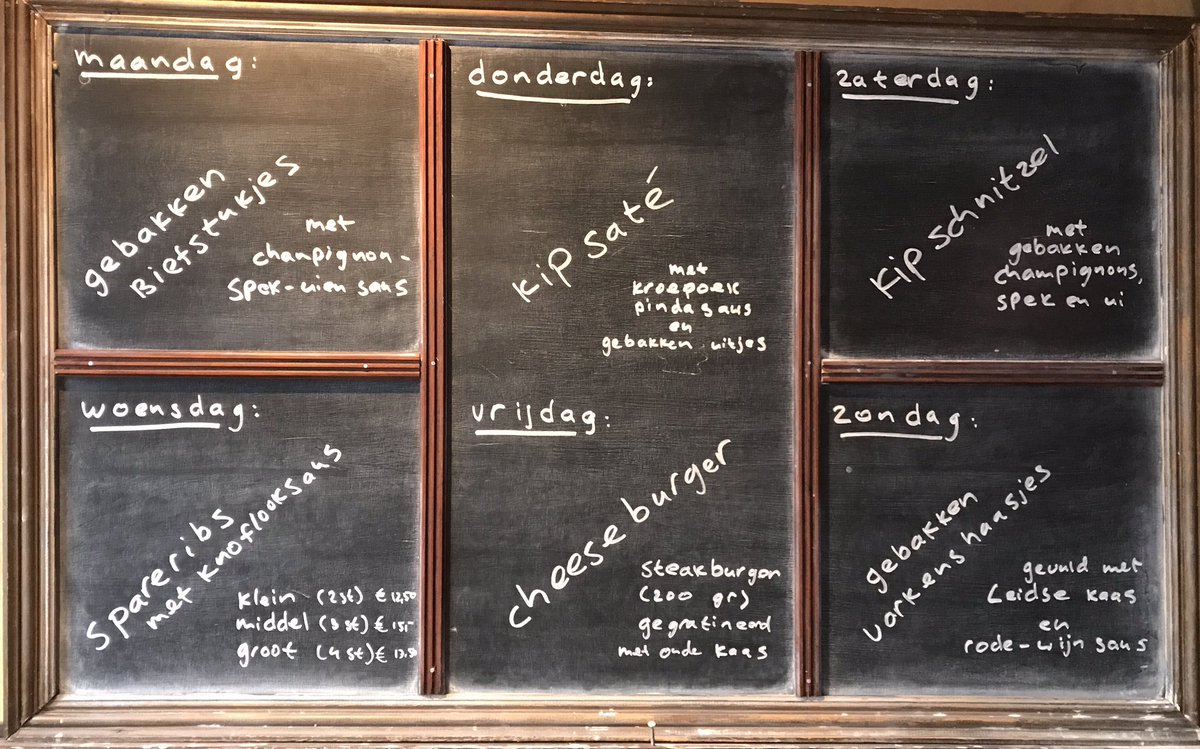 maandag:
gebakken
Biefstukjes
met
champignon-
spek-uien saus
woensdag:
spareribs
met knoflooksaus
klein (2st) € 12,50
middel (3st) € 15,-
groot (4st) €
donderdag:
Kip saté
met
kroepoek
pindasaus
en
gebakken uitjes
vrijdag:
cheeseburger
steakburger
(200 gr)
gegratineerd
met oude kaas
zaterdag:
Kip schnitzel
met
gebakken
champignons,
spek en ui
zondag:
gebakken
varkenshaasjes
gevuld met
Leidse kaas
en
rode-wijn saus